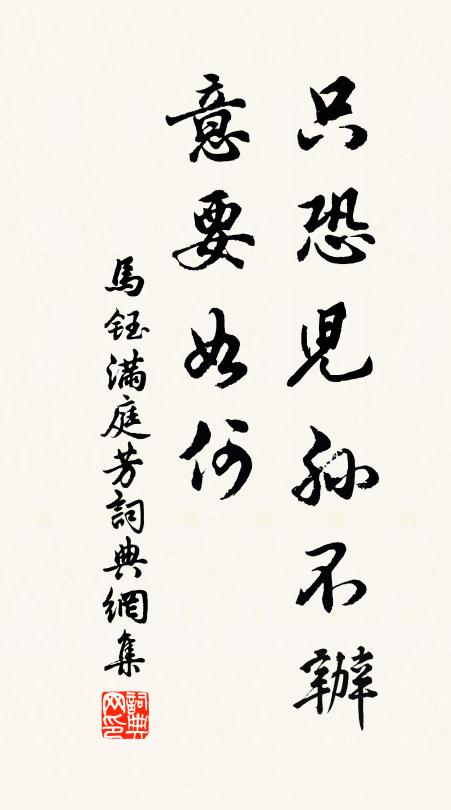 只恐児孫不辦
意要如何
馬鈺滿庭芳詞典網集
詞典网印